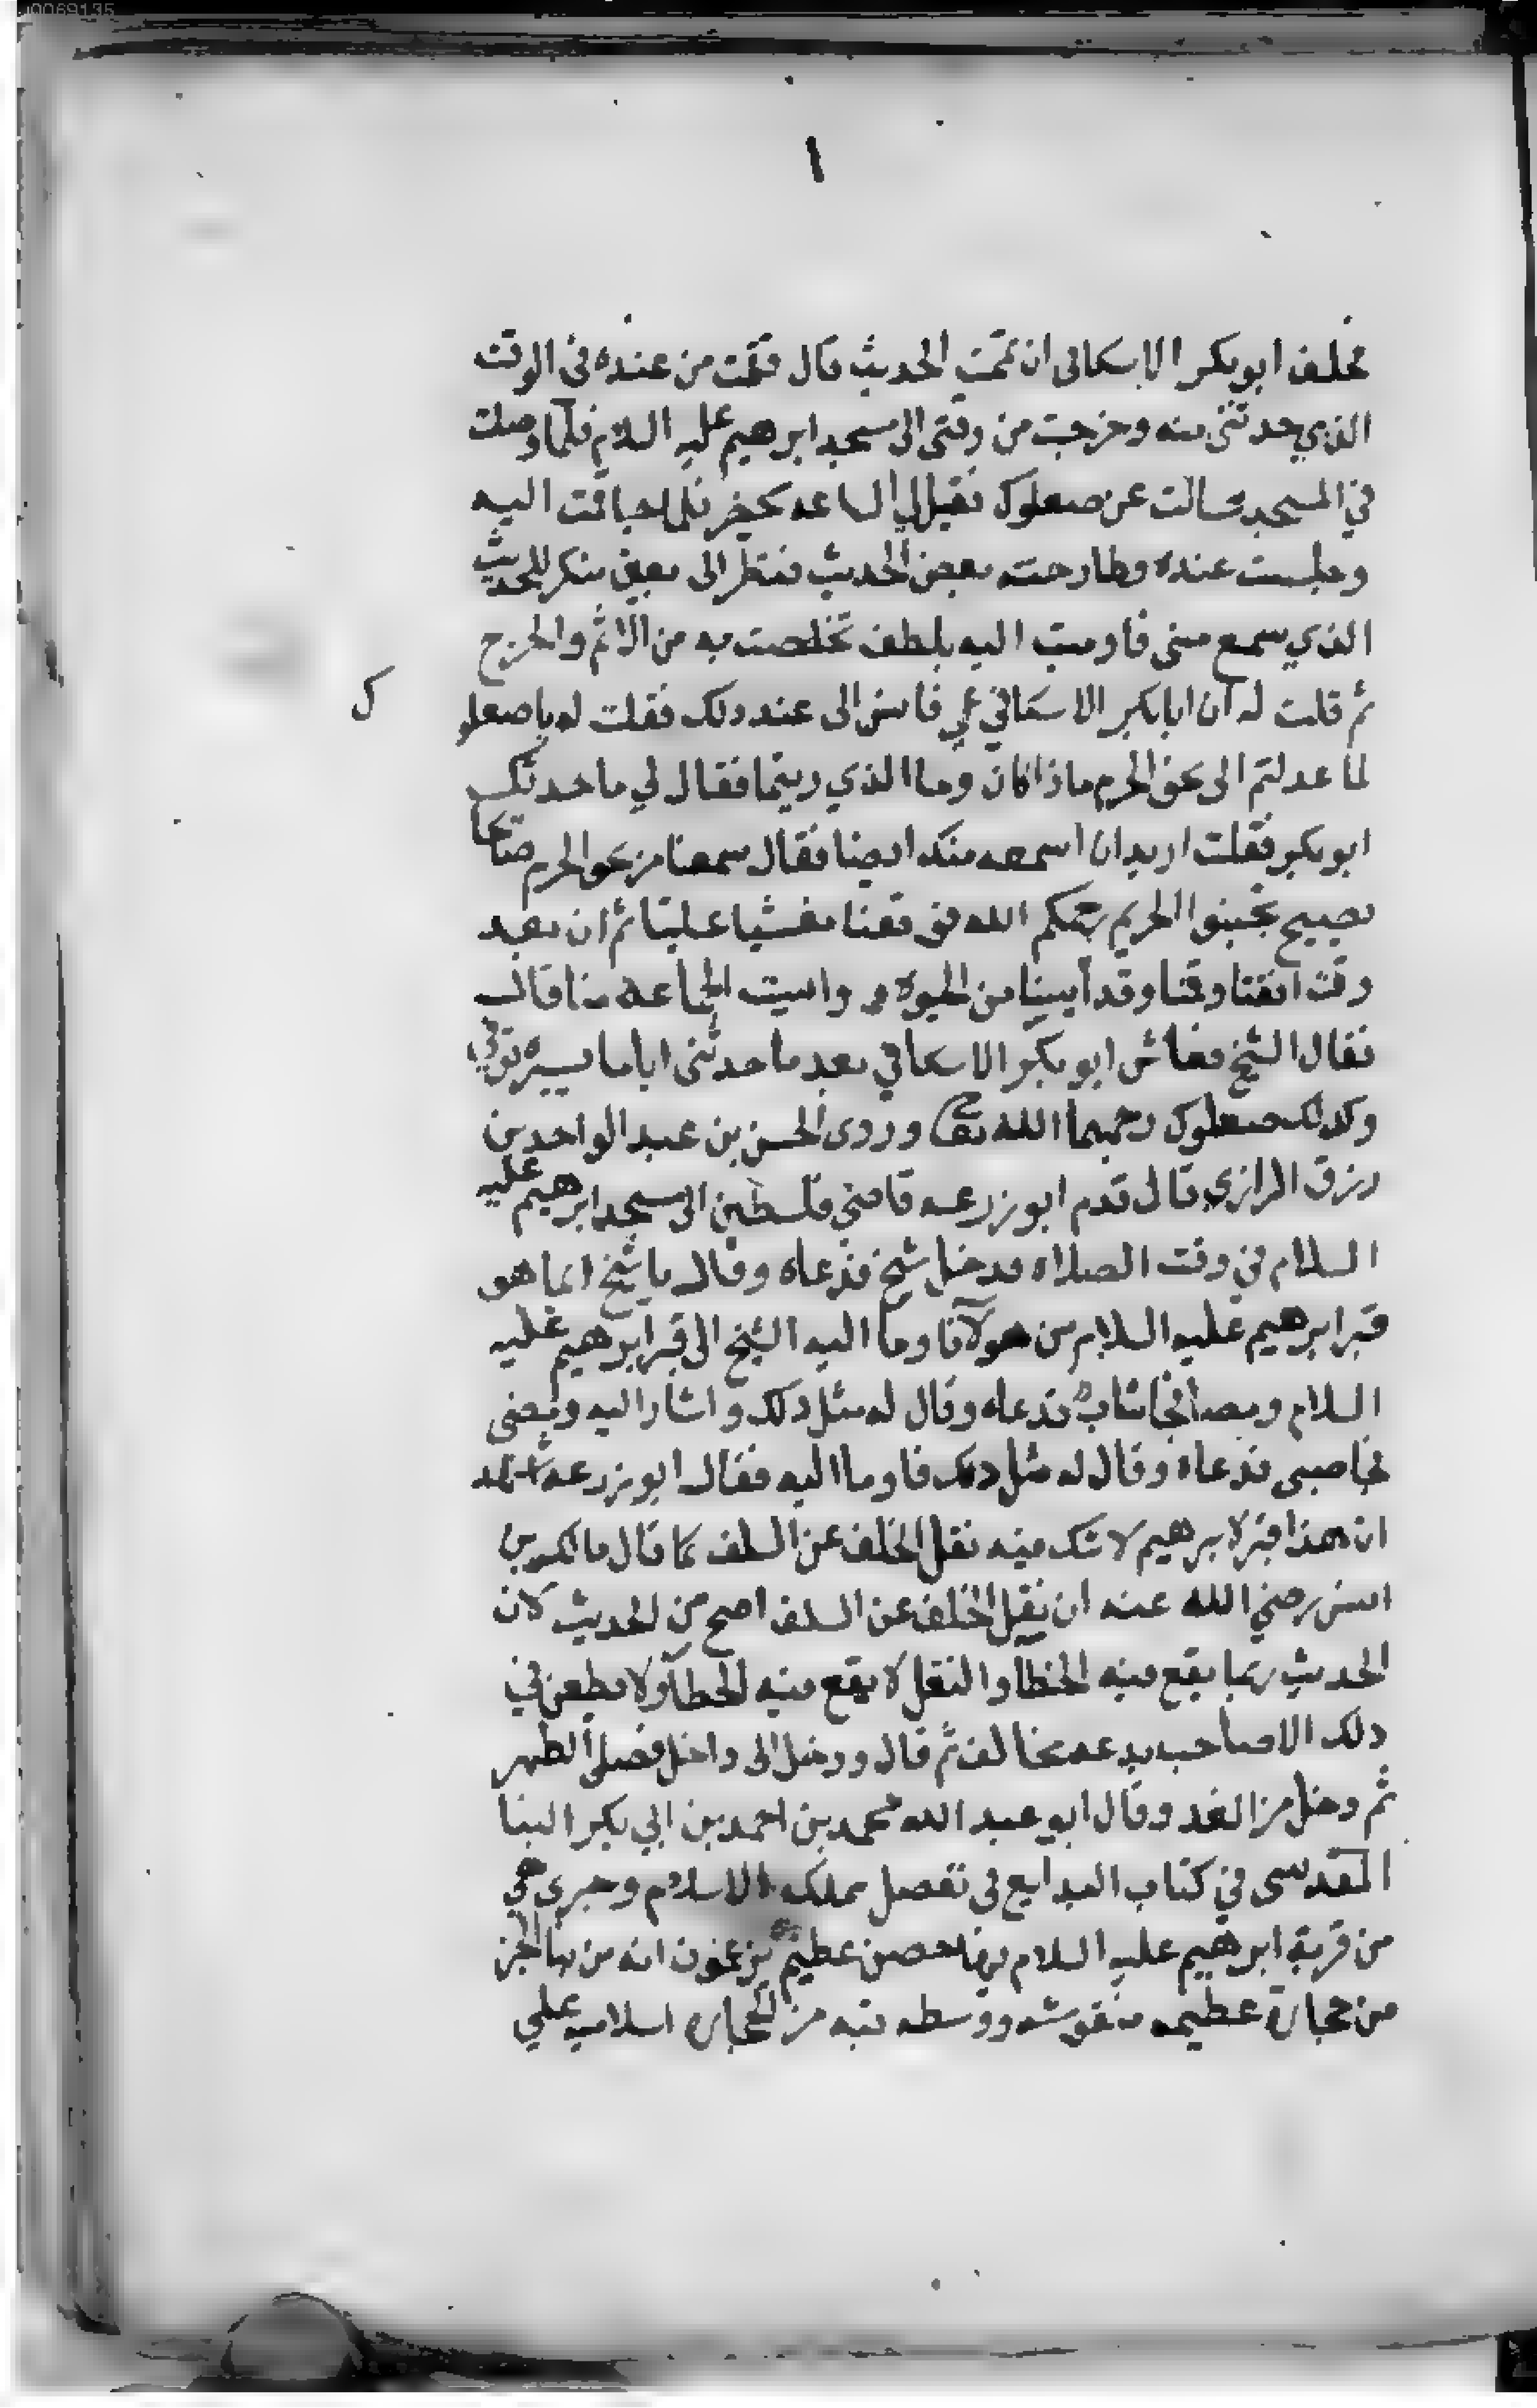 0069135
١
تحلف ابو بكر الاسكافى ان تممت الحديث قال فقمت من عنده فى الوقت
الذي حدثنى منه وخرجت من وقتى الى مسجد ابرهيم عليه السلام فلما وصلت
في المسجد سالت عن صعلوك فقيل لي الساعه يحضر فلما جا قمت اليه
وجلست عنده وطارحته بعض الحديث فنظر الى بعين منكر للحديث
الذي سمع منى فاومت اليه بلطف تخلصت به من الاثم والحرج
ثم قلت له ان ابا بكر الاسكافي عمي فانس الى عند ذلك فقلت له يا صعلو
ك
لما عدلتم الى نحو الحرم ماذا كان وما الذي رايتما فقال لي ما حدثك
ابو بكر فقلت اريد ان اسمعه منك ايضا فقال سمعنا من نحو الحرم صائحا
يصيح تجنبوا الحريم رحمكم الله فوقعنا مغشيا علينا ثم ان بعد
وقت افقنا وقمنا وقد أيسنا من الحيوة وايست الجماعه منا قال
فقال الشيخ فعاش ابو بكر الاسكافي بعد ما حدثنى اياما يسيره وتوفي
وكذلك صعلوك رحمهما الله تعا وروى الحسن بن عبد الواحد بن
رزق الرازي قال قدم ابو زرعه قاضي فلسطين الى مسجد ابرهيم عليه
السلام في وقت الصلاه فدخل شيخ فدعاه وقال يا شيخ ايما هو
قبر ابرهيم عليه السلام من هولآ فاوما اليه الشيخ الى قبر ابرهيم عليه
السلام ومضا فجا شاب فدعاه وقال له مثل ذلك واشار اليه ومضى
فجا صبى فدعاه وقال له مثل ذلك فاوما اليه فقال ابو زرعه اشهد
ان هذا قبر ابرهيم لا شك فيه نقل الخلف عن السلف كما قال مالك بن
انس رضي الله عنه ان نقل الخلف عن السلف اصح من الحديث لان
الحديث ربما يقع فيه الخطأ والنقل لا يقع فيه الخطأ ولا يطعن في
ذلك الا صاحب بدعه مخالف ثم قال ودخل الى داخل فصلى الظهر
ثم دخل من الغد وقال ابو عبد الله محمد بن احمد بن ابي بكر البنا
المقدسى في كتاب البدايع فى تفصيل مملكه الاسلام وحبرى هي
من قرية ابرهيم عليه السلام فيها حصن عظيم يزعمون انه من بنا الجن
من حجارة عظيمه منقوشه ووسطه قبه من الحجاره اسلاميه علي